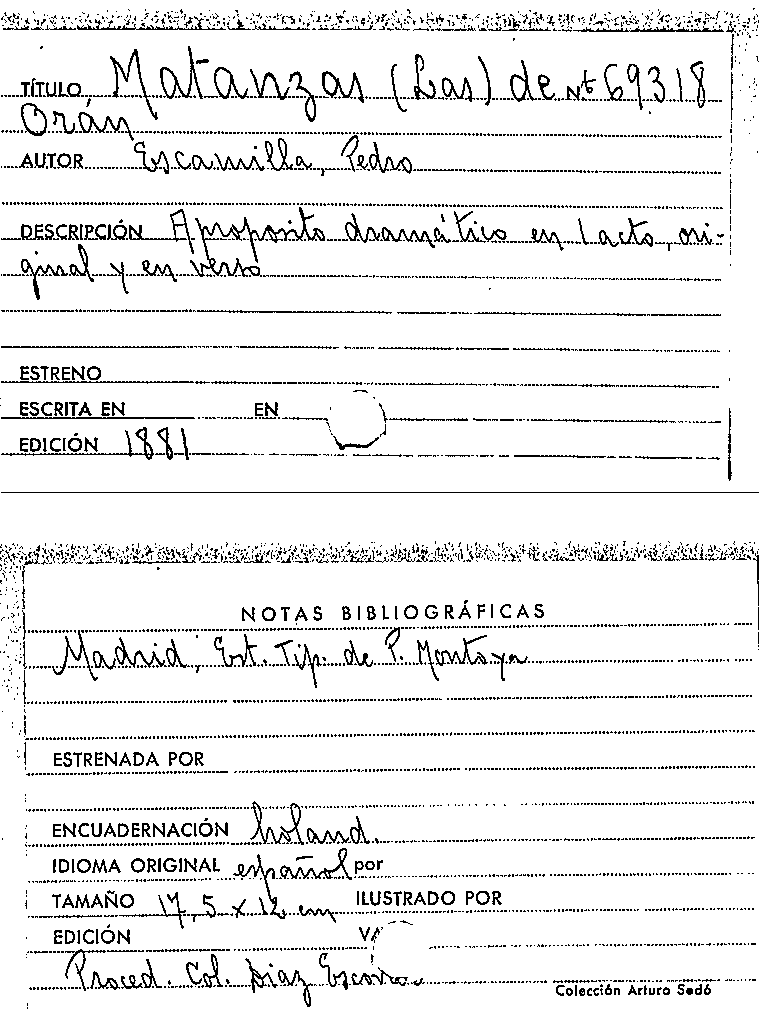 TÍTULO Matanzas (Las) de Nº 69318
Orán
AUTOR Escamilla, Pedro
DESCRIPCIÓN Aproposito dramático en 1 acto, ori-
ginal y en verso
ESTRENO
ESCRITA EN EN
EDICIÓN 1881
NOTAS BIBLIOGRÁFICAS
Madrid, Est. Tip. de P. Montoya
ESTRENADA POR
ENCUADERNACIÓN holand.
IDIOMA ORIGINAL español por
TAMAÑO 17,5 x 12 cm ILUSTRADO POR
EDICIÓN
Proced. Col. Díaz
Colección Arturo Sedó